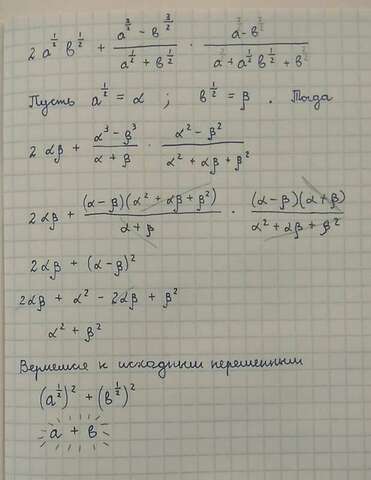 2 a^{1/2} в^{1/2} + (a^{3/2} - в^{3/2})/(a^{1/2} + в^{1/2}) · (a - в)/(a + a^{1/2} в^{1/2} + в)
Пусть a^{1/2} = α ; в^{1/2} = β . Тогда
2 αβ + (α³ - β³)/(α + β) · (α² - β²)/(α² + αβ + β²)
2 αβ + ((α - β)(α² + αβ + β²))/(α + β) · ((α - β)(α + β))/(α² + αβ + β²)
2αβ + (α - β)²
2αβ + α² - 2αβ + β²
α² + β²
Вернемся к исходным переменным
(a^{1/2})² + (в^{1/2})²
a + в